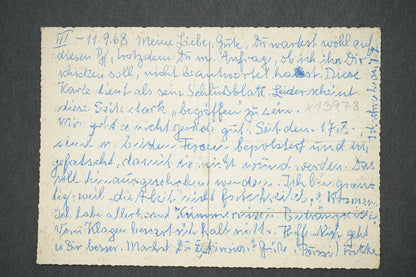 III - 11.9.68 Meine Liebe, Gute, Du wartest wohl auf
diesen Pf, trotzdem Du m. Anfrag, ob ich ihn Dir
schicken soll, nicht beantwortet hast. Diese
Karte dient als sein Schlußblatt. Leider scheint
diese Seite stark "begriffen" zu sein.
x13978
Mir geht es nicht gerade gut. Seit dem 17.8.
sind m. beiden Fersen bepolstert und in
gefatscht, damit sie nicht wund werden. Das
soll hin ausgeschoben werden. Ich bin gran
tig, weil die Arbeit nicht fortschreitet,
Ich habe allerhand Kummer
Vom Klagen bessert sich halt nichts. Hoffentlich geht
es Dir besser. Machst Du Gute